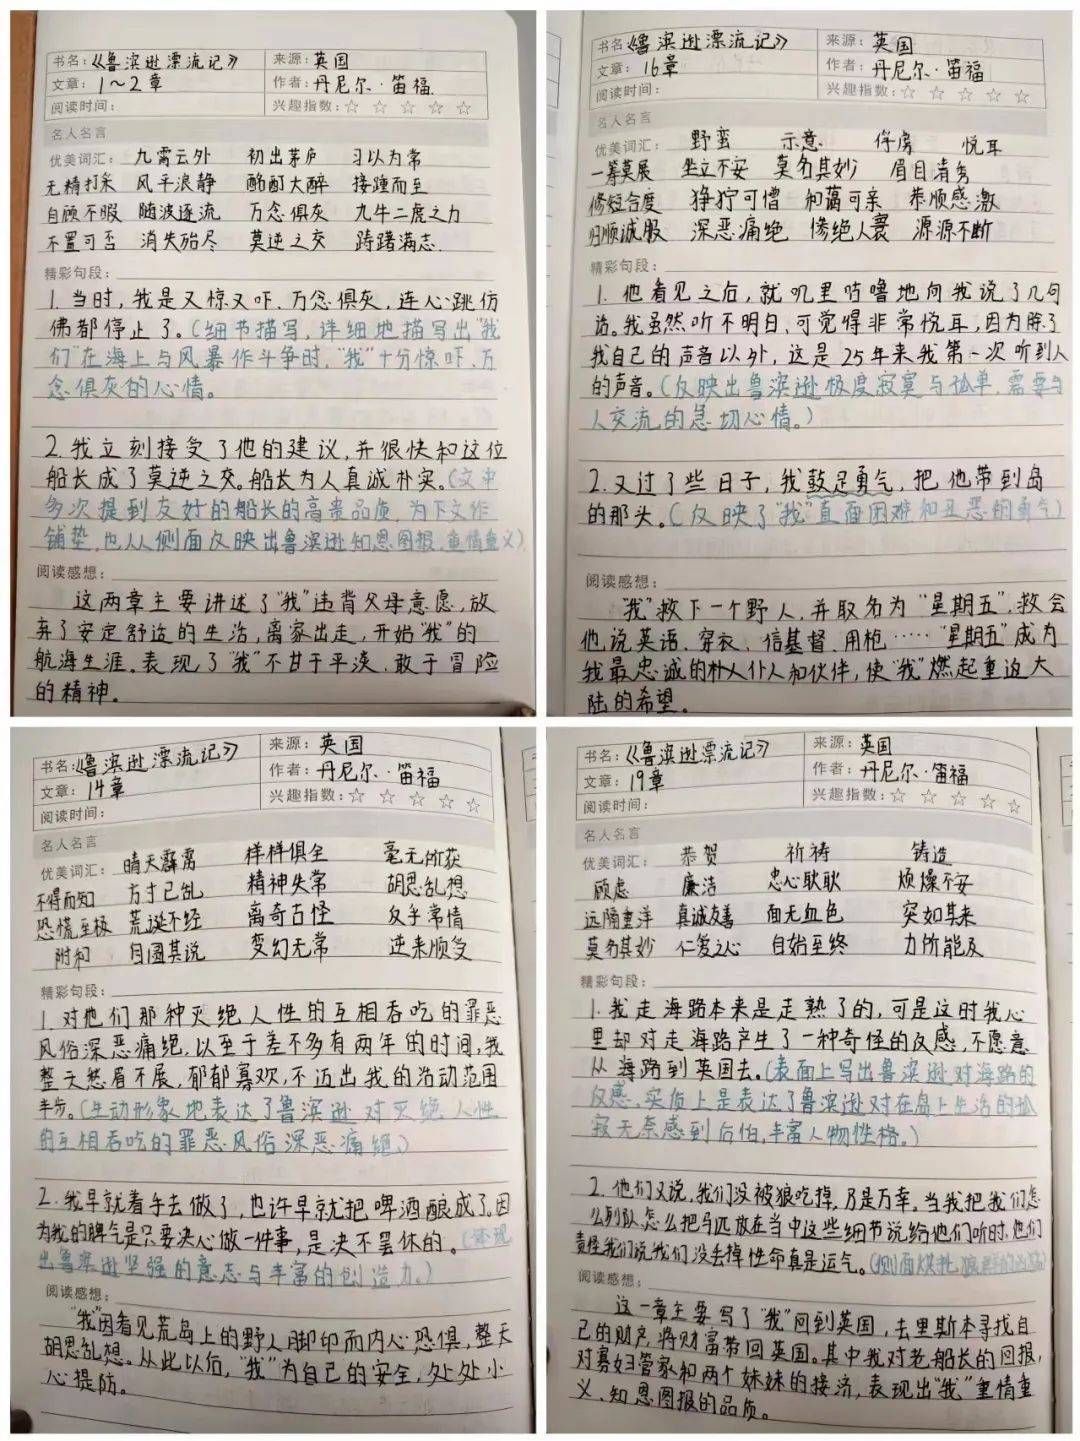 书名:《鲁滨逊漂流记》 来源:英国
文章:1～2章 作者:丹尼尔·笛福.
阅读时间: 兴趣指数:☆ ☆ ☆ ☆ ☆
名人名言
优美词汇: 九霄云外 初出茅庐 习以为常
无精打采 风平浪静 酩酊大醉 接踵而至
自顾不暇 随波逐流 万念俱灰 九牛二虎之力
不置可否 消失殆尽 莫逆之交 踌躇满志.
精彩句段:
1.当时,我是又惊又吓、万念俱灰,连心跳仿
佛都停止了。(细节描写,详细地描写出"我
们"在海上与风暴作斗争时,"我"十分惊吓、万
念俱灰的心情。
2.我立刻接受了他的建议,并很快和这位
船长成了莫逆之交。船长为人真诚朴实。(文中
多次提到友好的船长的高贵品质,为下文作
铺垫,也从侧面反映出鲁滨逊知恩图报,重情重义)
阅读感想:
这两章主要讲述了"我"违背父母意愿,放
弃了安定舒适的生活,离家出走,开始"我"的
航海生涯。表现了"我"不甘于平淡,敢于冒险
的精神。
书名:《鲁滨逊漂流记》 来源:英国
文章:16章 作者:丹尼尔·笛福
阅读时间: 兴趣指数:☆ ☆ ☆ ☆ ☆
名人名言
优美词汇: 野蛮 示意 俘虏 悦耳
一筹莫展 坐立不安 莫名其妙 眉目清秀
修短合度 狰狞可憎 和蔼可亲 恭顺感激
归顺诚服 深恶痛绝 惨绝人寰 源源不断
精彩句段:
1.他看见之后,就叽里咕噜地向我说了几句
话。我虽然听不明白,可觉得非常悦耳,因为除了
我自己的声音以外,这是25年来我第一次听到人
的声音。(反映出鲁滨逊极度寂寞与孤单,需要与
人交流的急切心情。)
2.又过了些日子,我鼓足勇气,把他带到岛
的那头。(反映了"我"直面困难和丑恶的勇气)
阅读感想:
"我"救下一个野人,并取名为"星期五",教会
他说英语、穿衣、信基督、用枪……"星期五"成为
我最忠诚的朴人仆人和伙伴,使"我"燃起重返大
陆的希望。
书名:《鲁滨逊漂流记》 来源:英国
文章:14章 作者:丹尼尔·笛福
阅读时间: 兴趣指数:☆ ☆ ☆ ☆ ☆
名人名言
优美词汇: 晴天霹雳 样样俱全 毫无所获
不得而知 方寸已乱 精神失常 胡思乱想
恐慌至极 荒诞不经 离奇古怪 反乎常情
附和 自圆其说 变幻无常 逆来顺受
精彩句段:
1.对他们那种灭绝人性的互相吞吃的罪恶
风俗深恶痛绝,以至于差不多有两年的时间,我
整天愁眉不展,郁郁寡欢,不迈出我的活动范围
半步。(生动形象地表达了鲁滨逊对灭绝人性
的互相吞吃的罪恶风俗深恶痛绝)
2.我早就着手去做了,也许早就把啤酒酿成了。因
为我的脾气是只要决心做一件事,是决不罢休的。(体现
出鲁滨逊坚强的意志与丰富的创造力。)
阅读感想:
"我"因看见荒岛上的野人脚印而内心恐惧,整天
胡思乱想。从此以后,"我"为自己的安全,处处小
心提防。
书名:《鲁滨逊漂流记》 来源:英国
文章:19章 作者:丹尼尔·笛福
阅读时间: 兴趣指数:☆ ☆ ☆ ☆ ☆
名人名言
优美词汇: 恭贺 祈祷 铸造
顾虑 廉洁 忠心耿耿 烦燥不安
远隔重洋 真诚友善 面无血色 突如其来
莫名其妙 仁爱之心 自始至终 力所能及
精彩句段:
1.我走海路本来是走熟了的,可是这时我心
里却对走海路产生了一种奇怪的反感,不愿意
从海路到英国去。(表面上写出鲁滨逊对海路的
反感,实质上是表达了鲁滨逊对在岛上生活的孤
寂无奈感到后怕,丰富人物性格。)
2.他们又说,我们没被狼吃掉,乃是万幸。当我把我们怎
么列队、怎么把马匹放在当中这些细节说给他们听时,他们
责怪我们说我们没丢掉性命真是运气。(侧面烘托狼群的
阅读感想:
这一章主要写了"我"回到英国,去里斯本寻找自
己的财产,将财富带回英国。其中我对老船长的回报,
对寡妇管家和两个妹妹的接济,表现出"我"重情重
义、知恩图报的品质。